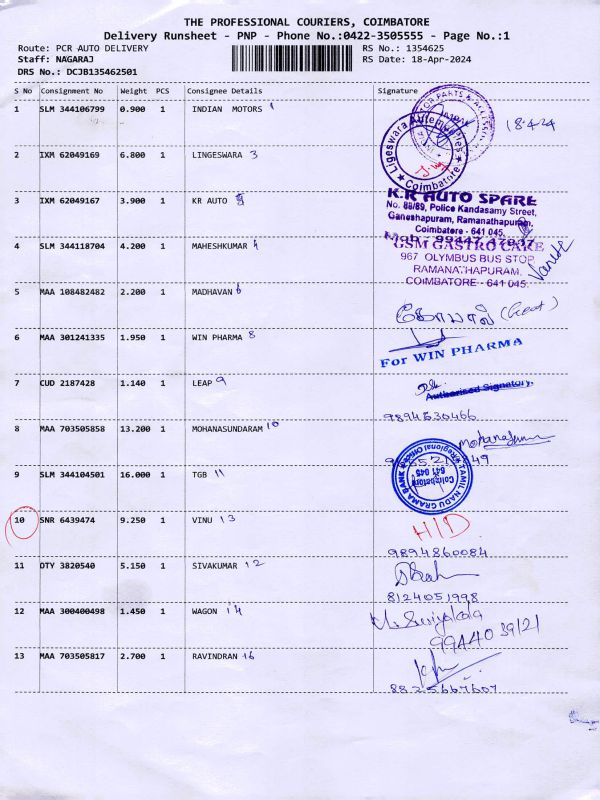 THE PROFESSIONAL COURIERS, COIMBATORE
Delivery Runsheet - PNP - Phone No.:0422-3505555 - Page No.:1
Route: PCR AUTO DELIVERY RS No.: 1354625
Staff: NAGARAJ RS Date: 18-Apr-2024
DRS No.: DCJB135462501
S No Consignment No Weight PCS Consignee Details Signature
1 SLM 344106799 0.900 1 INDIAN MOTORS 1
18-4-24
Ligeswara Automobiles
Coimbatore
2 IXM 62049169 6.800 1 LINGESWARA 3
3 IXM 62049167 3.900 1 KR AUTO
K.R AUTO SPARE
No. 88/89, Police Kandasamy Street,
Ganeshapuram, Ramanathapuram,
Coimbatore - 641 045.
4 SLM 344118704 4.200 1 MAHESHKUMAR
GSM GASTRO CARE
967 OLYMBUS BUS STOP
RAMANATHAPURAM,
COIMBATORE - 641 045.
5 MAA 108482482 2.200 1 MADHAVAN 6
கோபால்
6 MAA 301241335 1.950 1 WIN PHARMA 8
For WIN PHARMA
7 CUD 2187428 1.140 1 LEAP 9
Authorised Signatory.
9894530466
8 MAA 703505858 13.200 1 MOHANASUNDARAM 10
9 SLM 344104501 16.000 1 TGB 11
TAMIL NADU GRAMA BANK
Regional Office
Coimbatore
641 045
10 SNR 6439474 9.250 1 VINU 13
H/D
9894860084
11 DTY 3820540 5.150 1 SIVAKUMAR 12
8124051998
12 MAA 300400498 1.450 1 WAGON 14
9944039121
13 MAA 703505817 2.700 1 RAVINDRAN 16
8825667607